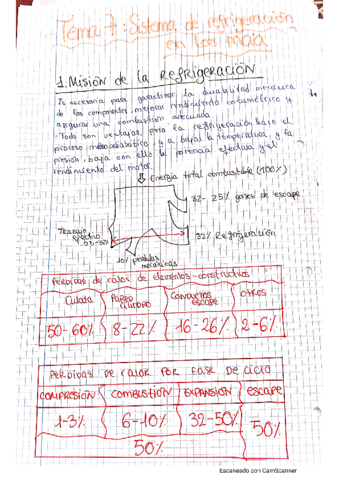 Tema 7: Sistema de refrigeración
en los mcia
1. Misión de la Refrigeración
Es necesaria para garantizar la durabilidad mecánica
de los componentes, mejorar rendimiento volumétrico y
asegurar una combustión adecuada
-Todo son ventajas, pero la refrigeración hace el
proceso menos adiabático, y a bajar la temperatura, y la
presión, baja con ello la potencia efectiva y el
rendimiento del motor.
Energía total combustible (100%)
32-25% gases de escape
Trabajo
efectivo
32% Refrigeración
20% pérdidas
mecánicas
Perdidas de calor de elementos-constructivos
Culata
Pared
Cilindro
Conductos
escape
otros
50-60%
8-22%
16-26%
2-6%
Perdidas de calor por fase de ciclo
Compresión
Combustión
Expansión
escape
1-3%
6-10%
32-50%
50%
50%
Escaneado con CamScanner